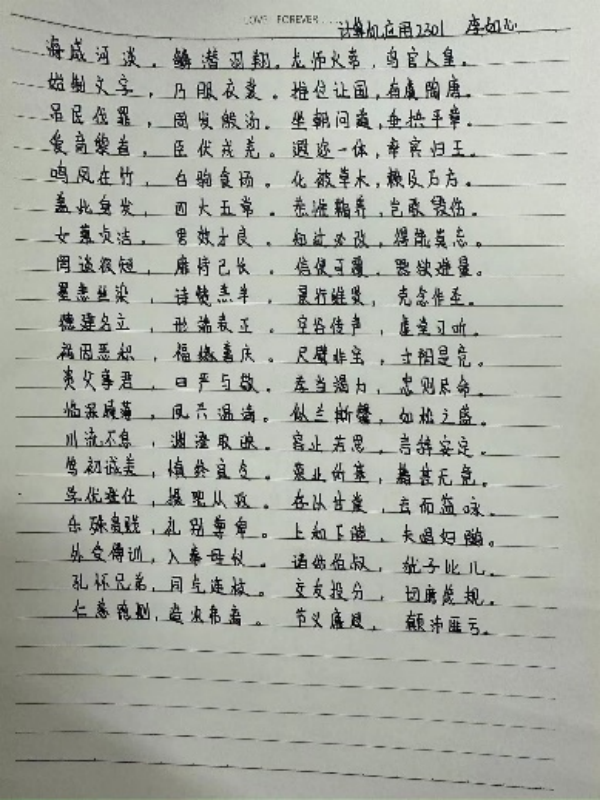 LOVE FOREVER
计算机应用2301 李如心
海咸河淡。鳞潜羽翔。龙师火帝，鸟官人皇。
始制文字，乃服衣裳。推位让国，有虞陶唐。
吊民伐罪，周发殷汤。坐朝问道，垂拱平章。
爱育黎首，臣伏戎羌。遐迩一体，率宾归王。
鸣凤在竹，白驹食场。化被草木，赖及万方。
盖此身发，四大五常。恭惟鞠养，岂敢毁伤。
女慕贞洁，男效才良。知过必改，得能莫忘。
罔谈彼短，靡恃己长。信使可覆。器欲难量。
墨悲丝染，诗赞羔羊。景行维贤，克念作圣。
德建名立，形端表正。空谷传声，虚堂习听。
祸因恶积，福缘善庆。尺璧非宝，寸阴是竞。
资父事君，曰严与敬。孝当竭力，忠则尽命。
临深履薄，夙兴温凊。似兰斯馨，如松之盛。
川流不息，渊澄取映。容止若思，言辞安定。
笃初诚美，慎终宜令。荣业所基，籍甚无竟。
学优登仕，摄职从政。存以甘棠，去而益咏。
乐殊贵贱，礼别尊卑。上和下睦，夫唱妇随。
外受傅训，入奉母仪。诸姑伯叔，犹子比儿。
孔怀兄弟，同气连枝。交友投分，切磨箴规。
仁慈隐恻，造次弗离。节义廉退，颠沛匪亏。